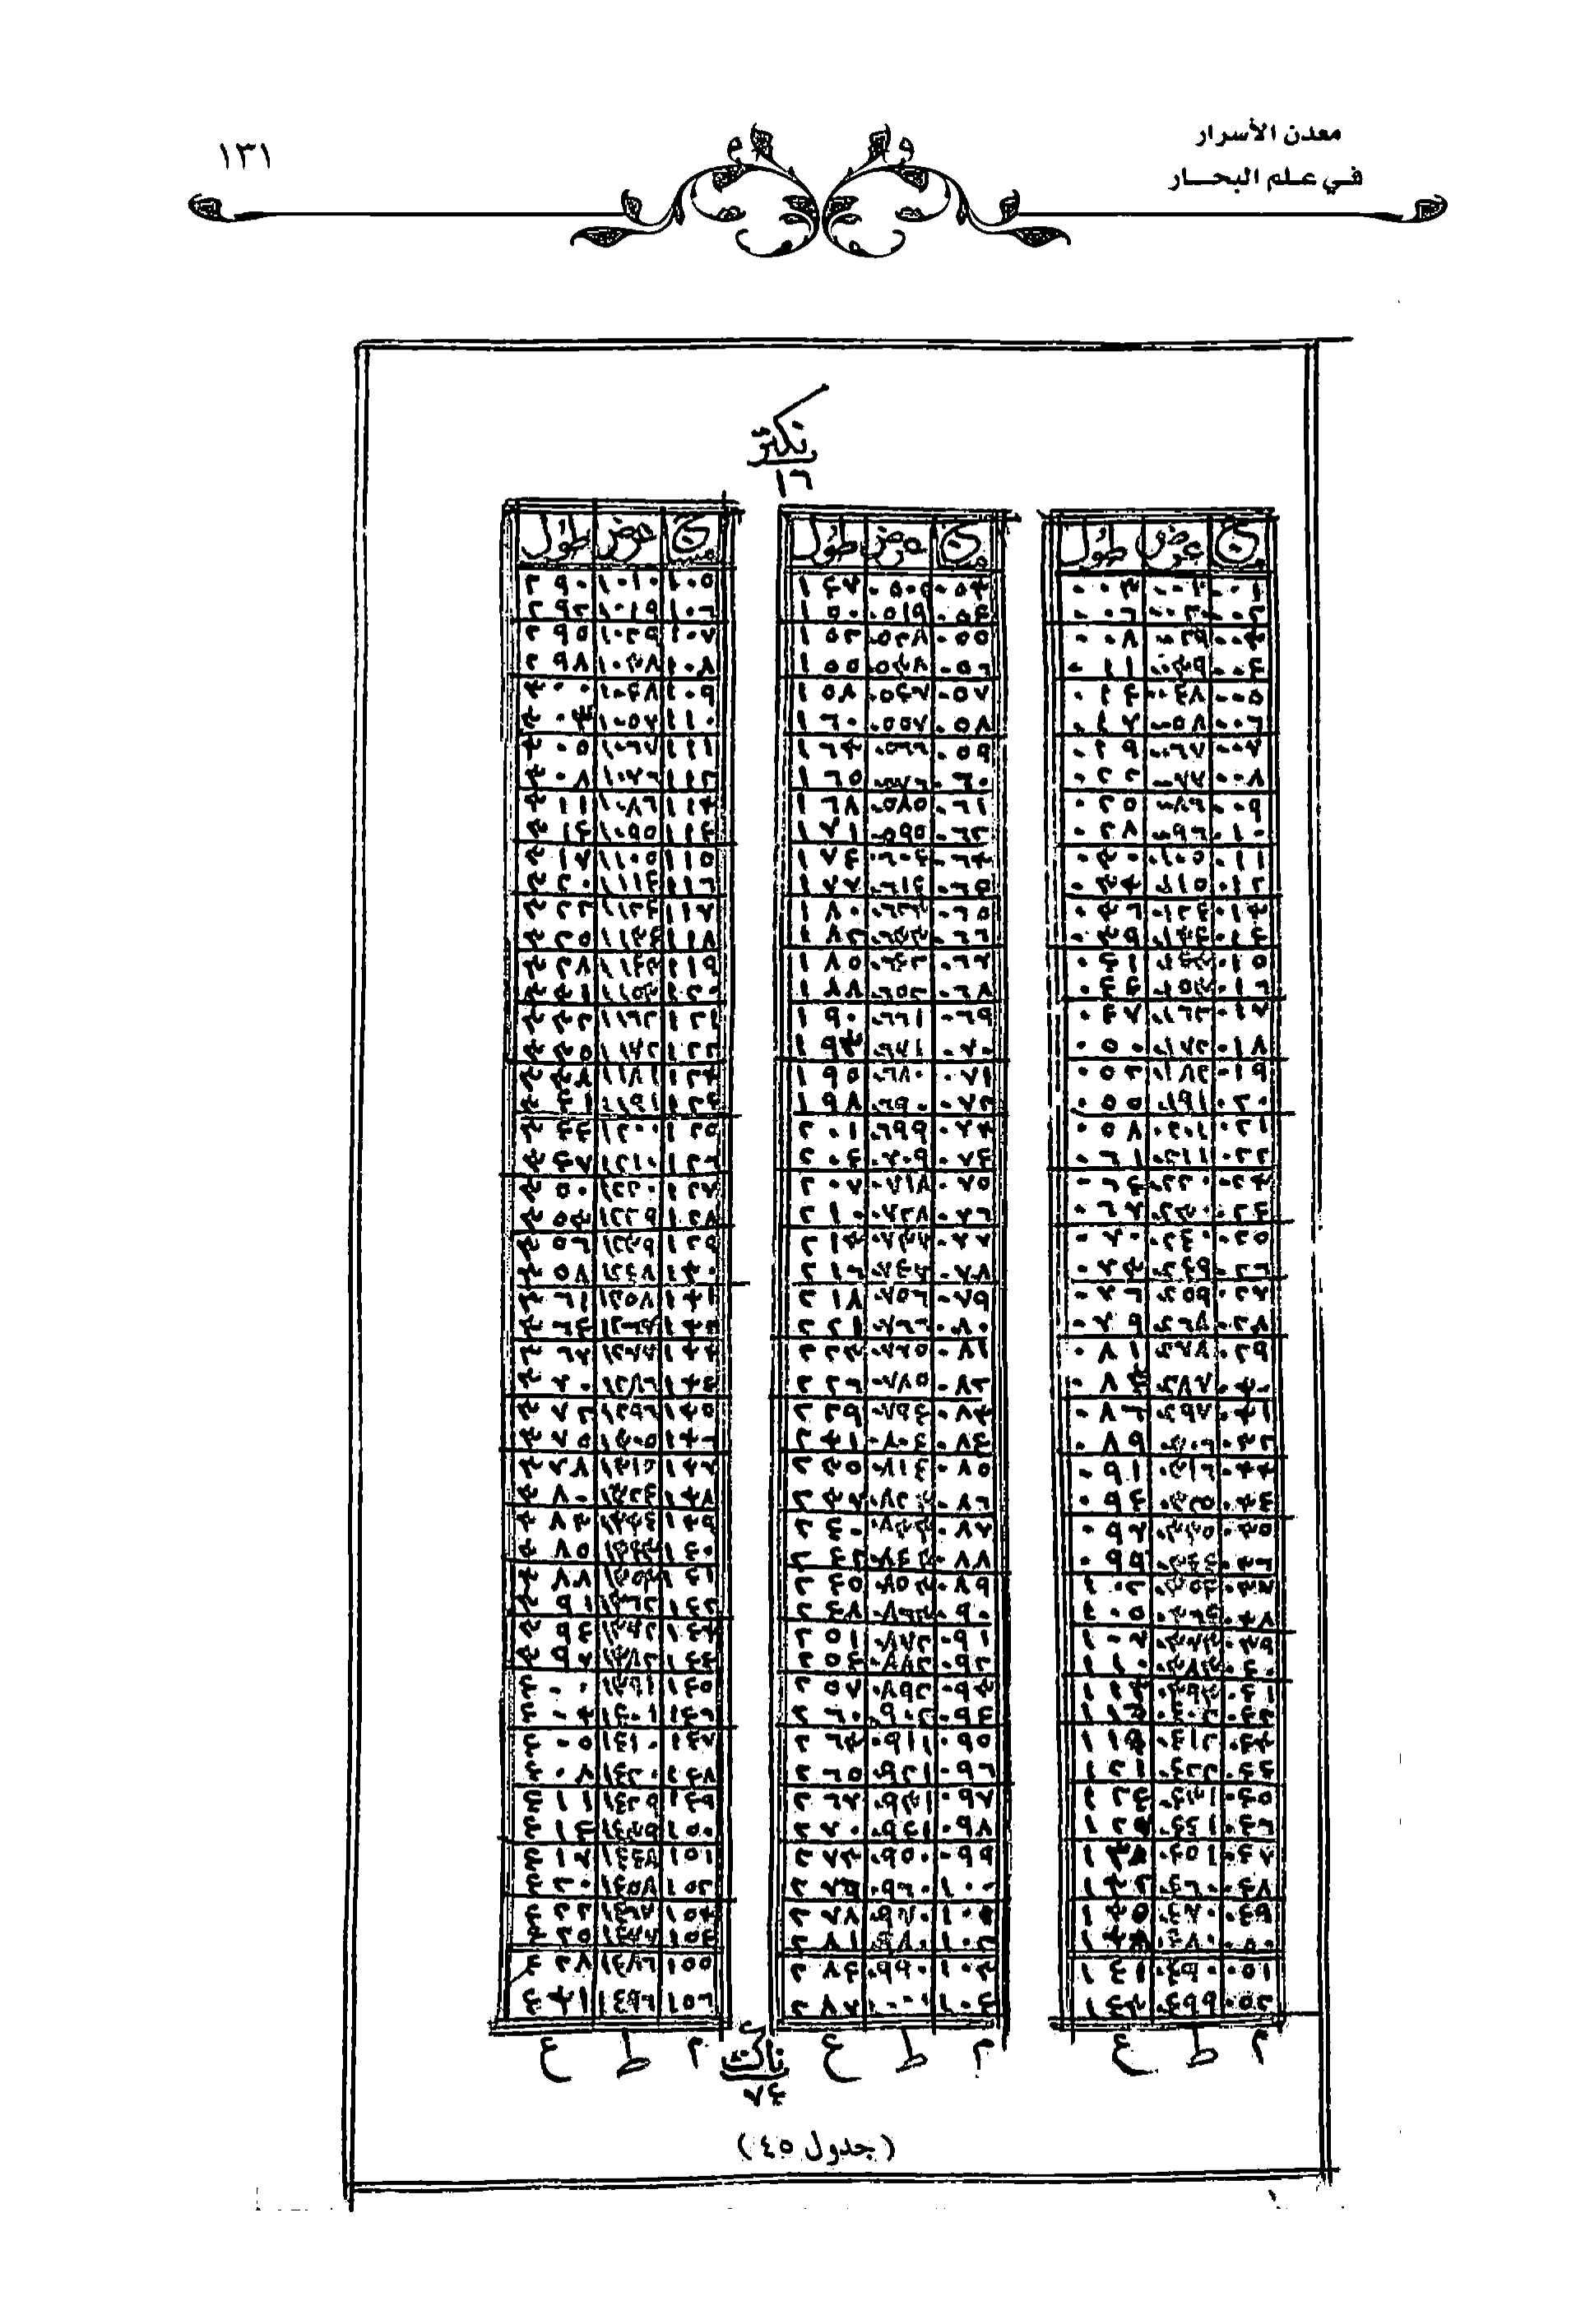 ١٣١
معدن الأسرار
في علم البحار
نكتز
١٦
مسح عرض طول
٠٠١ ٠٠١٠ ٠٠٣
٠٠٢ ٠٠٢٠ ٠٠٦
٠٠٣ ٠٠٢٩ ٠٠٨
٠٠٤ ٠٠٣٩ ٠١١
٠٠٥ ٠٠٤٨ ٠١٤
٠٠٦ ٠٠٥٨ ٠١٧
٠٠٧ ٠٠٦٧ ٠١٩
٠٠٨ ٠٠٧٧ ٠٢٢
٠٠٩ ٠٠٨٦ ٠٢٥
٠١٠ ٠٠٩٦ ٠٢٨
٠١١ ٠١٠٥ ٠٣٠
٠١٢ ٠١١٥ ٠٣٣
٠١٣ ٠١٢٤ ٠٣٦
٠١٤ ٠١٣٤ ٠٣٩
٠١٥ ٠٤١
٠١٦ ٠١٥٣ ٠٤٤
٠١٧ ٠١٦٢ ٠٤٧
٠١٨ ٠١٧٢ ٠٥٠
٠١٩ ٠١٨٢ ٠٥٢
٠٢٠ ٠١٩١ ٠٥٥
٠٢١ ٠٢٠١ ٠٥٨
٠٢٢ ٠٢١١ ٠٦١
٠٢٣ ٠٢٢٠ ٠٦٤
٠٢٤ ٠٢٣٠ ٠٦٧
٠٢٥ ٠٢٤٠ ٠٧٠
٠٢٦ ٠٢٤٩ ٠٧٣
٠٢٧ ٠٢٥٩ ٠٧٦
٠٢٨ ٠٢٦٨ ٠٧٩
٠٢٩ ٠٢٧٨ ٠٨١
٠٣٠ ٠٢٨٧ ٠٨٣
٠٣١ ٠٢٩٧ ٠٨٦
٠٣٢ ٠٣٠٦ ٠٨٩
٠٣٣ ٠٣١٦ ٠٩١
٠٣٤ ٠٣٢٥ ٠٩٤
٠٣٥ ٠٣٣٥ ٠٩٧
٠٣٦ ٠٣٤٤ ٠٩٩
٠٣٧ ٠٣٥٤ ١٠٢
٠٣٨ ١٠٥
٠٣٩ ٠٣٧٣ ١٠٧
٠٤٠ ٠٣٨٣ ١١٠
٠٤١ ٠٣٩٣ ١١٣
٠٤٢
٠٤٣ ٠٤١٢
٠٤٤ ٠٤٢٢ ١٢١
٠٤٥ ٠٤٣١ ١٢٤
٠٤٦ ٠٤٤١
٠٤٧ ٠٤٥١
٠٤٨ ٠٤٦٠ ١٣٢
٠٤٩ ٠٤٧٠ ١٣٥
٠٤٨٠
٠٥١ ٠٤٩٠ ١٤١
٠٥٢ ٠٤٩٩ ١٤٣
م ط ع
مسح عرض طول
٠٥٣ ١٤٧
٠٥٤ ٠٥١٩ ١٥٠
٠٥٥ ٠٥٢٨ ١٥٢
٠٥٦ ٠٥٣٨ ١٥٥
٠٥٧ ٠٥٤٧ ١٥٨
٠٥٨ ٠٥٥٧ ١٦٠
٠٥٩ ٠٥٦٦ ١٦٣
٠٦٠ ٠٥٧٦ ١٦٥
٠٦١ ٠٥٨٥ ١٦٨
٠٦٢ ٠٥٩٥ ١٧١
٠٦٣ ٠٦٠٤ ١٧٤
٠٦١٤ ١٧٧
٠٦٥ ١٨٠
٠٦٦ ٠٦٣٣ ١٨٢
٠٦٧ ٠٦٤٢ ١٨٥
٠٦٨ ٠٦٥٢ ١٨٨
٠٦٩ ٠٦٦١ ١٩٠
٠٧٠ ٠٦٧١ ١٩٣
٠٧١ ٠٦٨٠ ١٩٥
٠٧٢ ٠٦٩٠ ١٩٨
٠٧٣ ٠٦٩٩ ٢٠١
٠٧٤ ٠٧٠٩ ٢٠٤
٠٧٥ ٠٧١٨ ٢٠٧
٠٧٦ ٠٧٢٨ ٢١٠
٠٧٧ ٠٧٣٧ ٢١٣
٠٧٨ ٠٧٤٧ ٢١٦
٠٧٩ ٠٧٥٦ ٢١٨
٠٨٠ ٠٧٦٦ ٢٢١
٠٨١ ٠٧٧٥ ٢٢٣
٠٨٢ ٠٧٨٥ ٢٢٦
٠٨٣ ٠٧٩٤ ٢٢٩
٠٨٤ ٠٨٠٤ ٢٣١
٠٨٥ ٠٨١٤ ٢٣٥
٠٨٦ ٠٨٢٠ ٢٣٧
٠٨٧ ٠٨٣٣ ٢٤٠
٠٨٨ ٠٨٤٣ ٢٤٢
٠٨٩ ٠٨٥٣ ٢٤٥
٠٩٠ ٠٨٦٣ ٢٤٨
٠٩١ ٠٨٧٢ ٢٥١
٠٩٢ ٠٨٨٢ ٢٥٤
٠٩٣ ٠٨٩٢ ٢٥٧
٠٩٤ ٠٩٠٢ ٢٦٠
٠٩٥ ٠٩١١ ٢٦٣
٠٩٦ ٠٩٢١ ٢٦٥
٠٩٧ ٠٩٣١ ٢٦٧
٠٩٨ ٠٩٤١ ٢٧٠
٠٩٩ ٠٩٥٠ ٢٧٣
١٠٠ ٠٩٦٠ ٢٧٥
١٠١ ٠٩٧٠ ٢٧٨
١٠٢ ٠٩٨٠ ٢٨١
١٠٣ ٠٩٩٠ ٢٨٤
١٠٤ ١٠٠٠ ٢٨٧
م ط ع
مسح عرض طول
١٠٥ ١٠١٠ ٢٩٠
١٠٦ ١٠١٩ ٢٩٢
١٠٧ ١٠٢٩ ٢٩٥
١٠٨ ١٠٣٨ ٢٩٨
١٠٩ ١٠٤٨ ٣٠٠
١١٠ ١٠٥٧ ٣٠٣
١١١ ١٠٦٧ ٣٠٥
١١٢ ١٠٧٦ ٣٠٨
١١٣ ١٠٨٦ ٣١١
١١٤ ١٠٩٥ ٣١٤
١١٥ ١١٠٥ ٣١٧
١١٦ ١١١٤ ٣٢٠
١١٧ ١١٢٤ ٣٢٢
١١٨ ١١٣٤ ٣٢٥
١١٩ ١١٤٣ ٣٢٨
١٢٠ ١١٥٣ ٣٣١
١٢١ ١١٦٢ ٣٣٣
١٢٢ ١١٧٢ ٣٣٥
١٢٣ ١١٨١ ٣٣٨
١٢٤ ١١٩١ ٣٤١
١٢٥ ١٢٠٠ ٣٤٤
١٢٦ ١٢١٠ ٣٤٧
١٢٧ ١٢٢٠ ٣٥٠
١٢٨ ١٢٢٩ ٣٥٣
١٢٩ ١٢٣٩ ٣٥٦
١٣٠ ١٢٤٨ ٣٥٨
١٣١ ١٢٥٨ ٣٦١
١٣٢ ١٢٦٧ ٣٦٤
١٣٣ ١٢٧٧ ٣٦٧
١٣٤ ١٢٨٦ ٣٧٠
١٣٥ ١٢٩٦ ٣٧٢
١٣٦ ١٣٠٥ ٣٧٥
١٣٧ ١٣١٥ ٣٧٨
١٣٨ ١٣٢٤ ٣٨٠
١٣٩ ١٣٣٤ ٣٨٣
١٤٠ ١٣٤٣ ٣٨٥
١٤١ ١٣٥٣ ٣٨٨
١٤٢ ١٣٦٢ ٣٩١
١٤٣ ١٣٧٢ ٣٩٤
١٤٤ ١٣٨٢ ٣٩٧
١٤٥ ١٣٩١ ٤٠٠
١٤٦ ١٤٠١ ٤٠٣
١٤٧ ١٤١٠ ٤٠٥
١٤٨ ١٤٢٠ ٤٠٨
١٤٩ ١٤٢٩ ٤١١
١٥٠ ١٤٣٩ ٤١٤
١٥١ ١٤٤٨ ٤١٧
١٥٢ ١٤٥٨ ٤٢٠
١٥٣ ١٤٦٧ ٤٢٢
١٥٤ ١٤٧٧ ٤٢٥
١٥٥ ١٤٨٦ ٤٢٨
١٥٦ ١٤٩٦ ٤٣١
م ط ع
ناكت
٧٤
(جدول ٤٥)